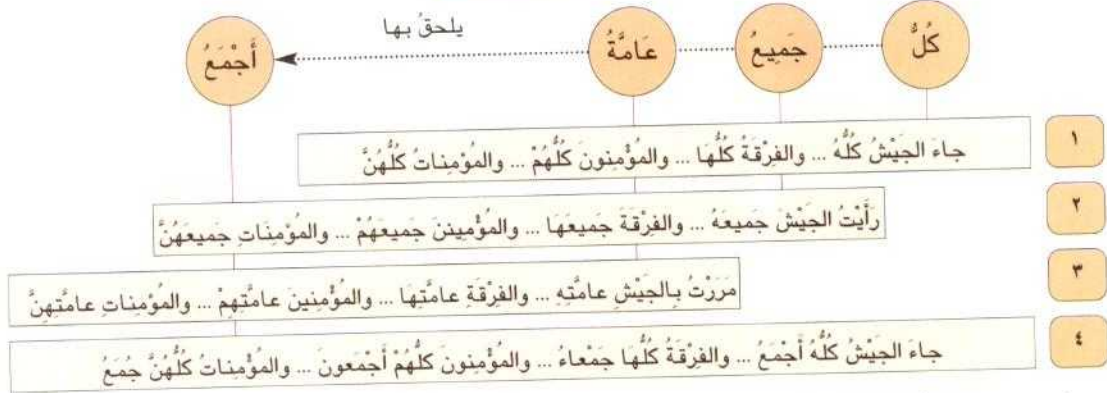 كُلُّ
جَمِيعُ
عَامَّةُ
يلحقُ بها
أَجْمَعُ
١
جاءَ الجَيْشُ كُلُّهُ ... والفِرْقَةُ كُلُّهَا ... والمُؤْمِنونَ كُلُّهُمْ ... والمُؤمِناتُ كُلُّهُنَّ
٢
رَأَيْتُ الجَيْشَ جَميعَهُ ... والفِرْقَةَ جَميعَهَا ... والمُؤْمِيننَ جَميعَهُمْ ... والمُؤمِنَاتِ جَميعَهُنَّ
٣
مَرَرْتُ بِالجَيْشِ عامَّتِهِ ... والفِرْقَةِ عامَّتِهَا ... والمُؤْمِنينَ عامَّتِهِمْ ... والمُؤمِناتِ عامَّتِهِنَّ
٤
جاءَ الجَيْشُ كلُّهُ أَجْمَعُ ... والفِرْقَةُ كُلُّهَا جَمْعاءُ ... والمُؤْمِنونَ كلُّهُمْ أَجْمَعونَ ... والمُؤمِناتُ كلُّهُنَّ جُمَعُ